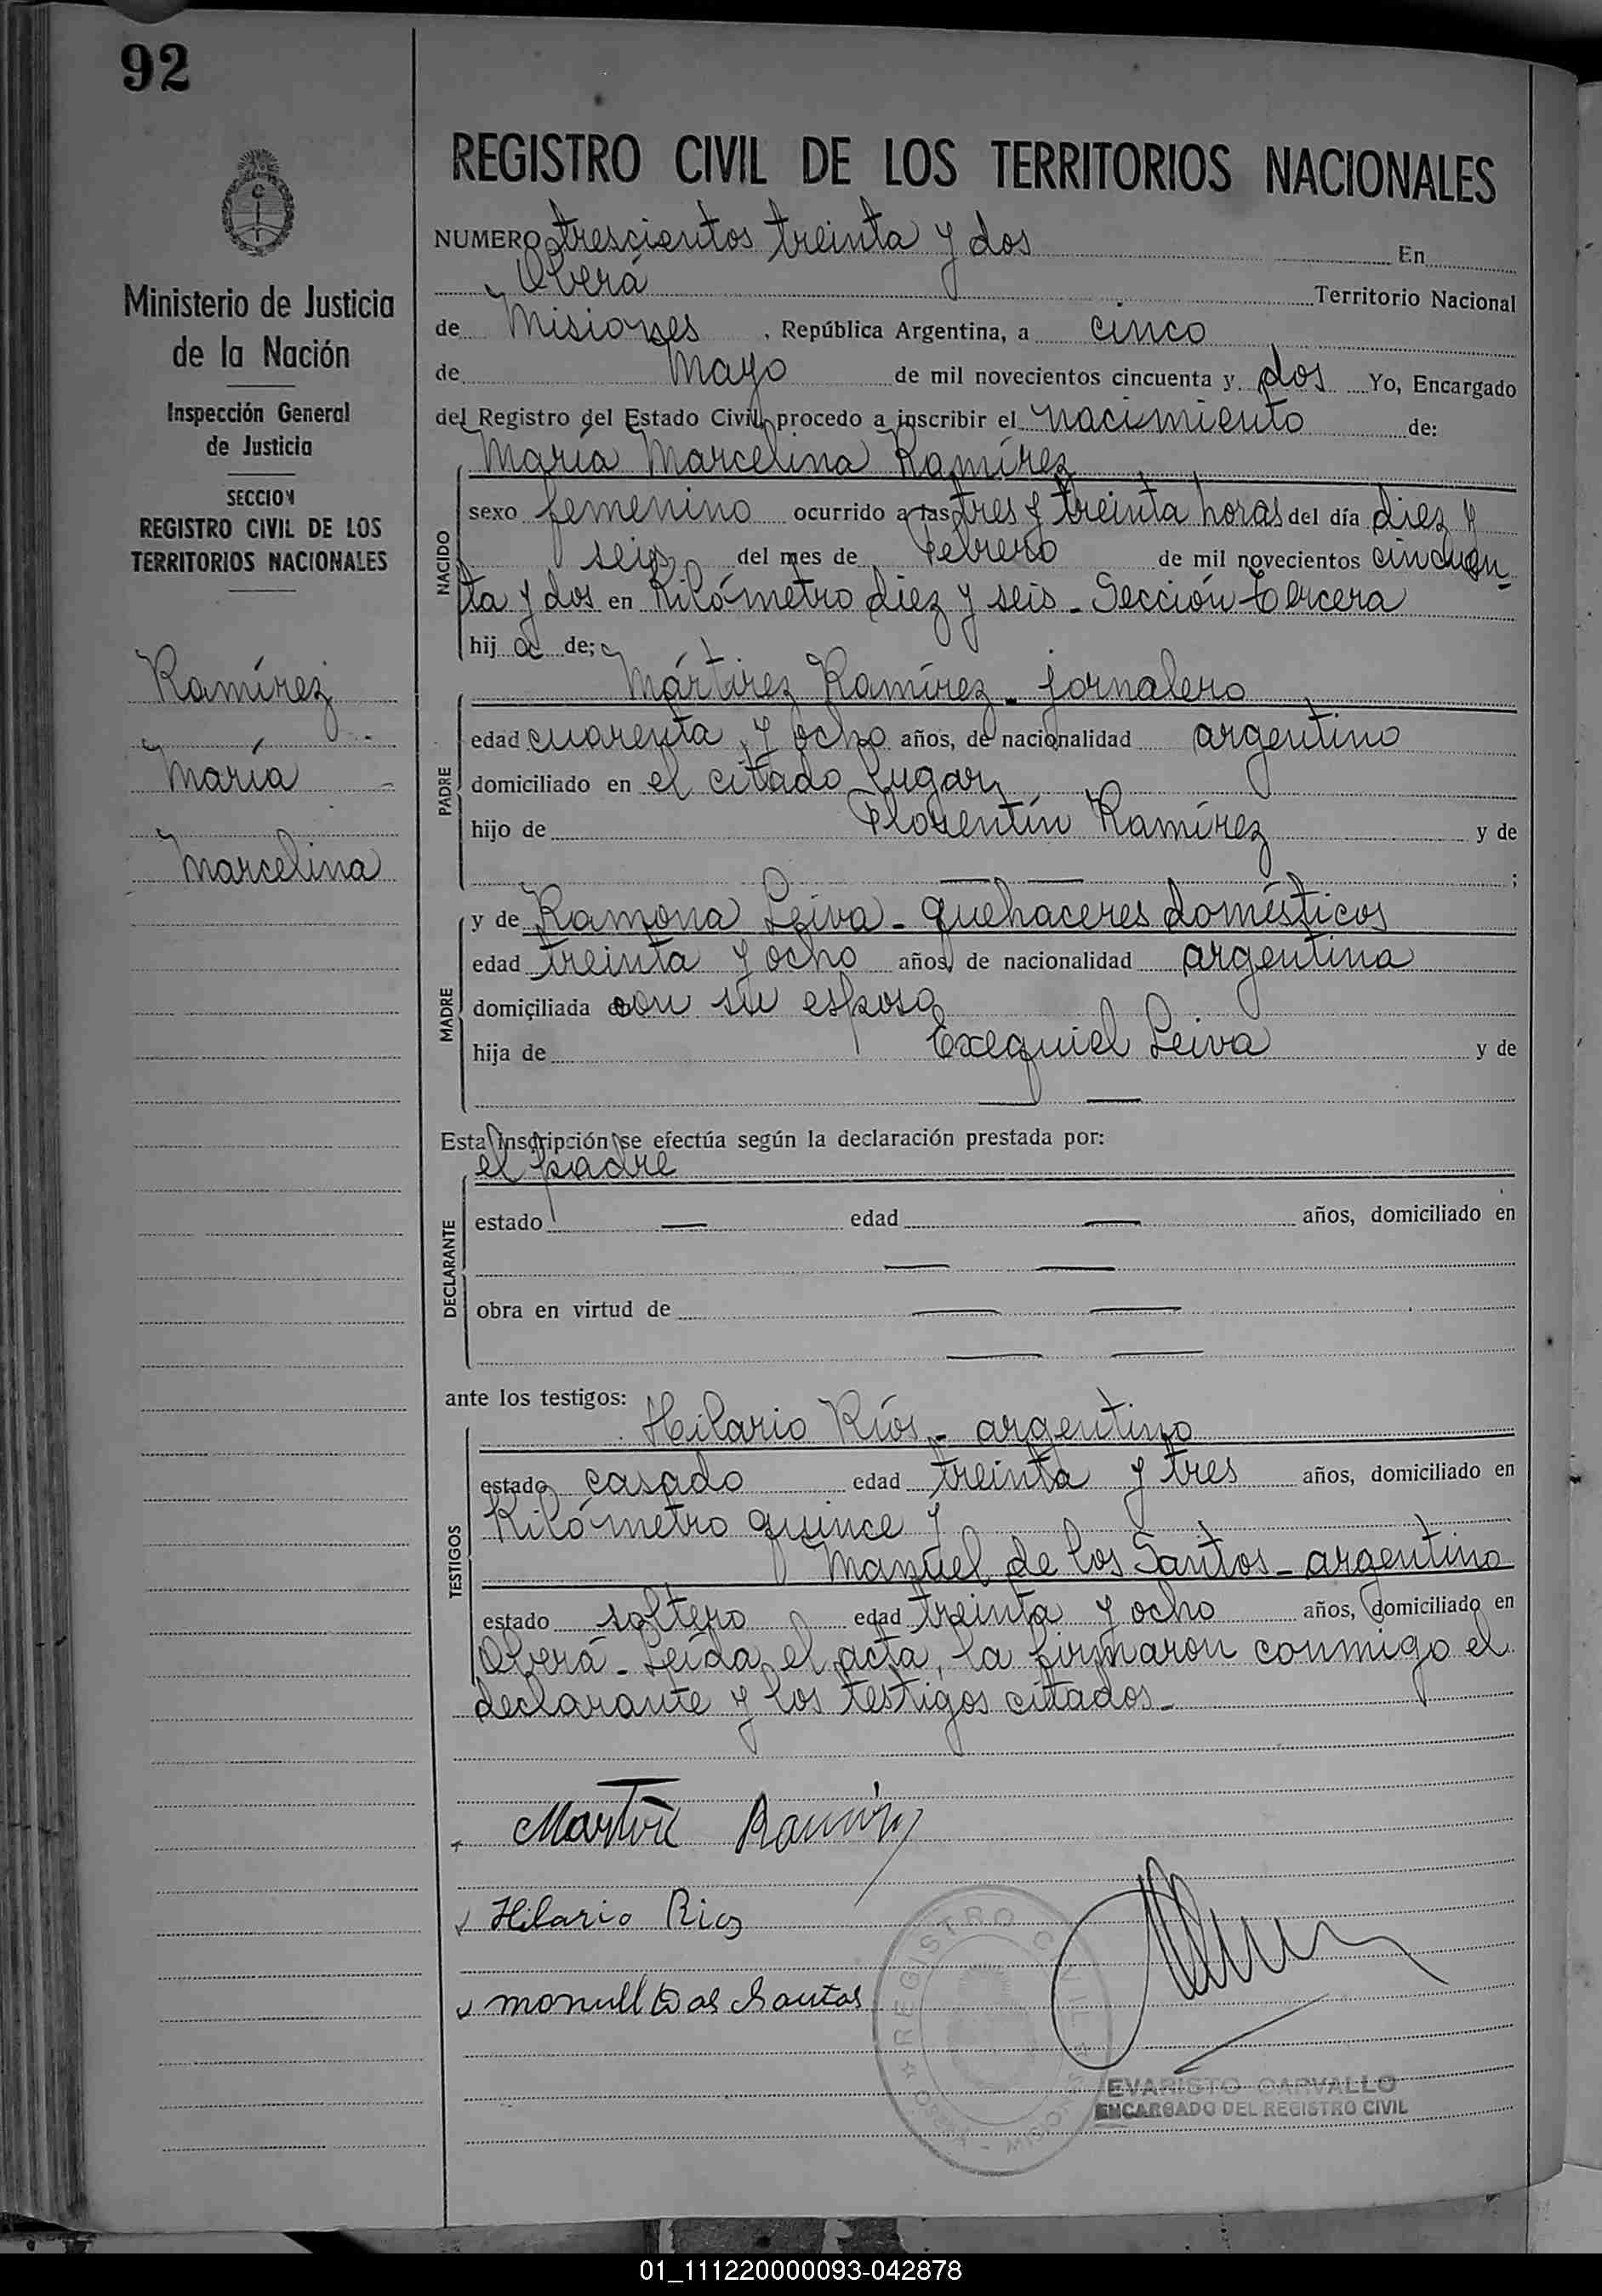 92
Ministerio de Justicia
de la Nación
Inspección General
de Justicia
SECCION
REGISTRO CIVIL DE LOS
TERRITORIOS NACIONALES
Ramírez
María
Marcelina
REGISTRO CIVIL DE LOS TERRITORIOS NACIONALES
NUMERO trescientos treinta y dos En
Oberá Territorio Nacional
de Misiones, República Argentina, a cinco
de Mayo de mil novecientos cincuenta y dos Yo, Encargado
del Registro del Estado Civil, procedo a inscribir el nacimiento de:
María Marcelina Ramírez
NACIDO
sexo femenino ocurrido a las tres y treinta horas del día diez y
seis del mes de Febrero de mil novecientos cincuen-
ta y dos en Kilómetro diez y seis - Sección tercera
hij a de;
PADRE
Mártirez Ramírez - jornalero
edad cuarenta y ocho años, de nacionalidad argentino
domiciliado en el citado lugar
hijo de Florentín Ramírez y de
— — ;
MADRE
y de Ramona Leiva - quehaceres domésticos
edad treinta y ocho años, de nacionalidad argentina
domiciliada con su esposo
hija de Exequiel Leiva y de
— —
Esta inscripción se efectúa según la declaración prestada por:
el padre
DECLARANTE
estado — edad — años, domiciliado en
— —
obra en virtud de — —
— —
ante los testigos:
TESTIGOS
Hilario Ríos - argentino
estado casado edad treinta y tres años, domiciliado en
Kilómetro quince y
Manuel de los Santos - argentino
estado soltero edad treinta y ocho años, domiciliado en
Oberá - Leída el acta, la firmaron conmigo el
declarante y los testigos citados -
Hilario Rios
REGISTRO CIVIL
EVARISTO CARVALLO
ENCARGADO DEL REGISTRO CIVIL
01_111220000093-042878